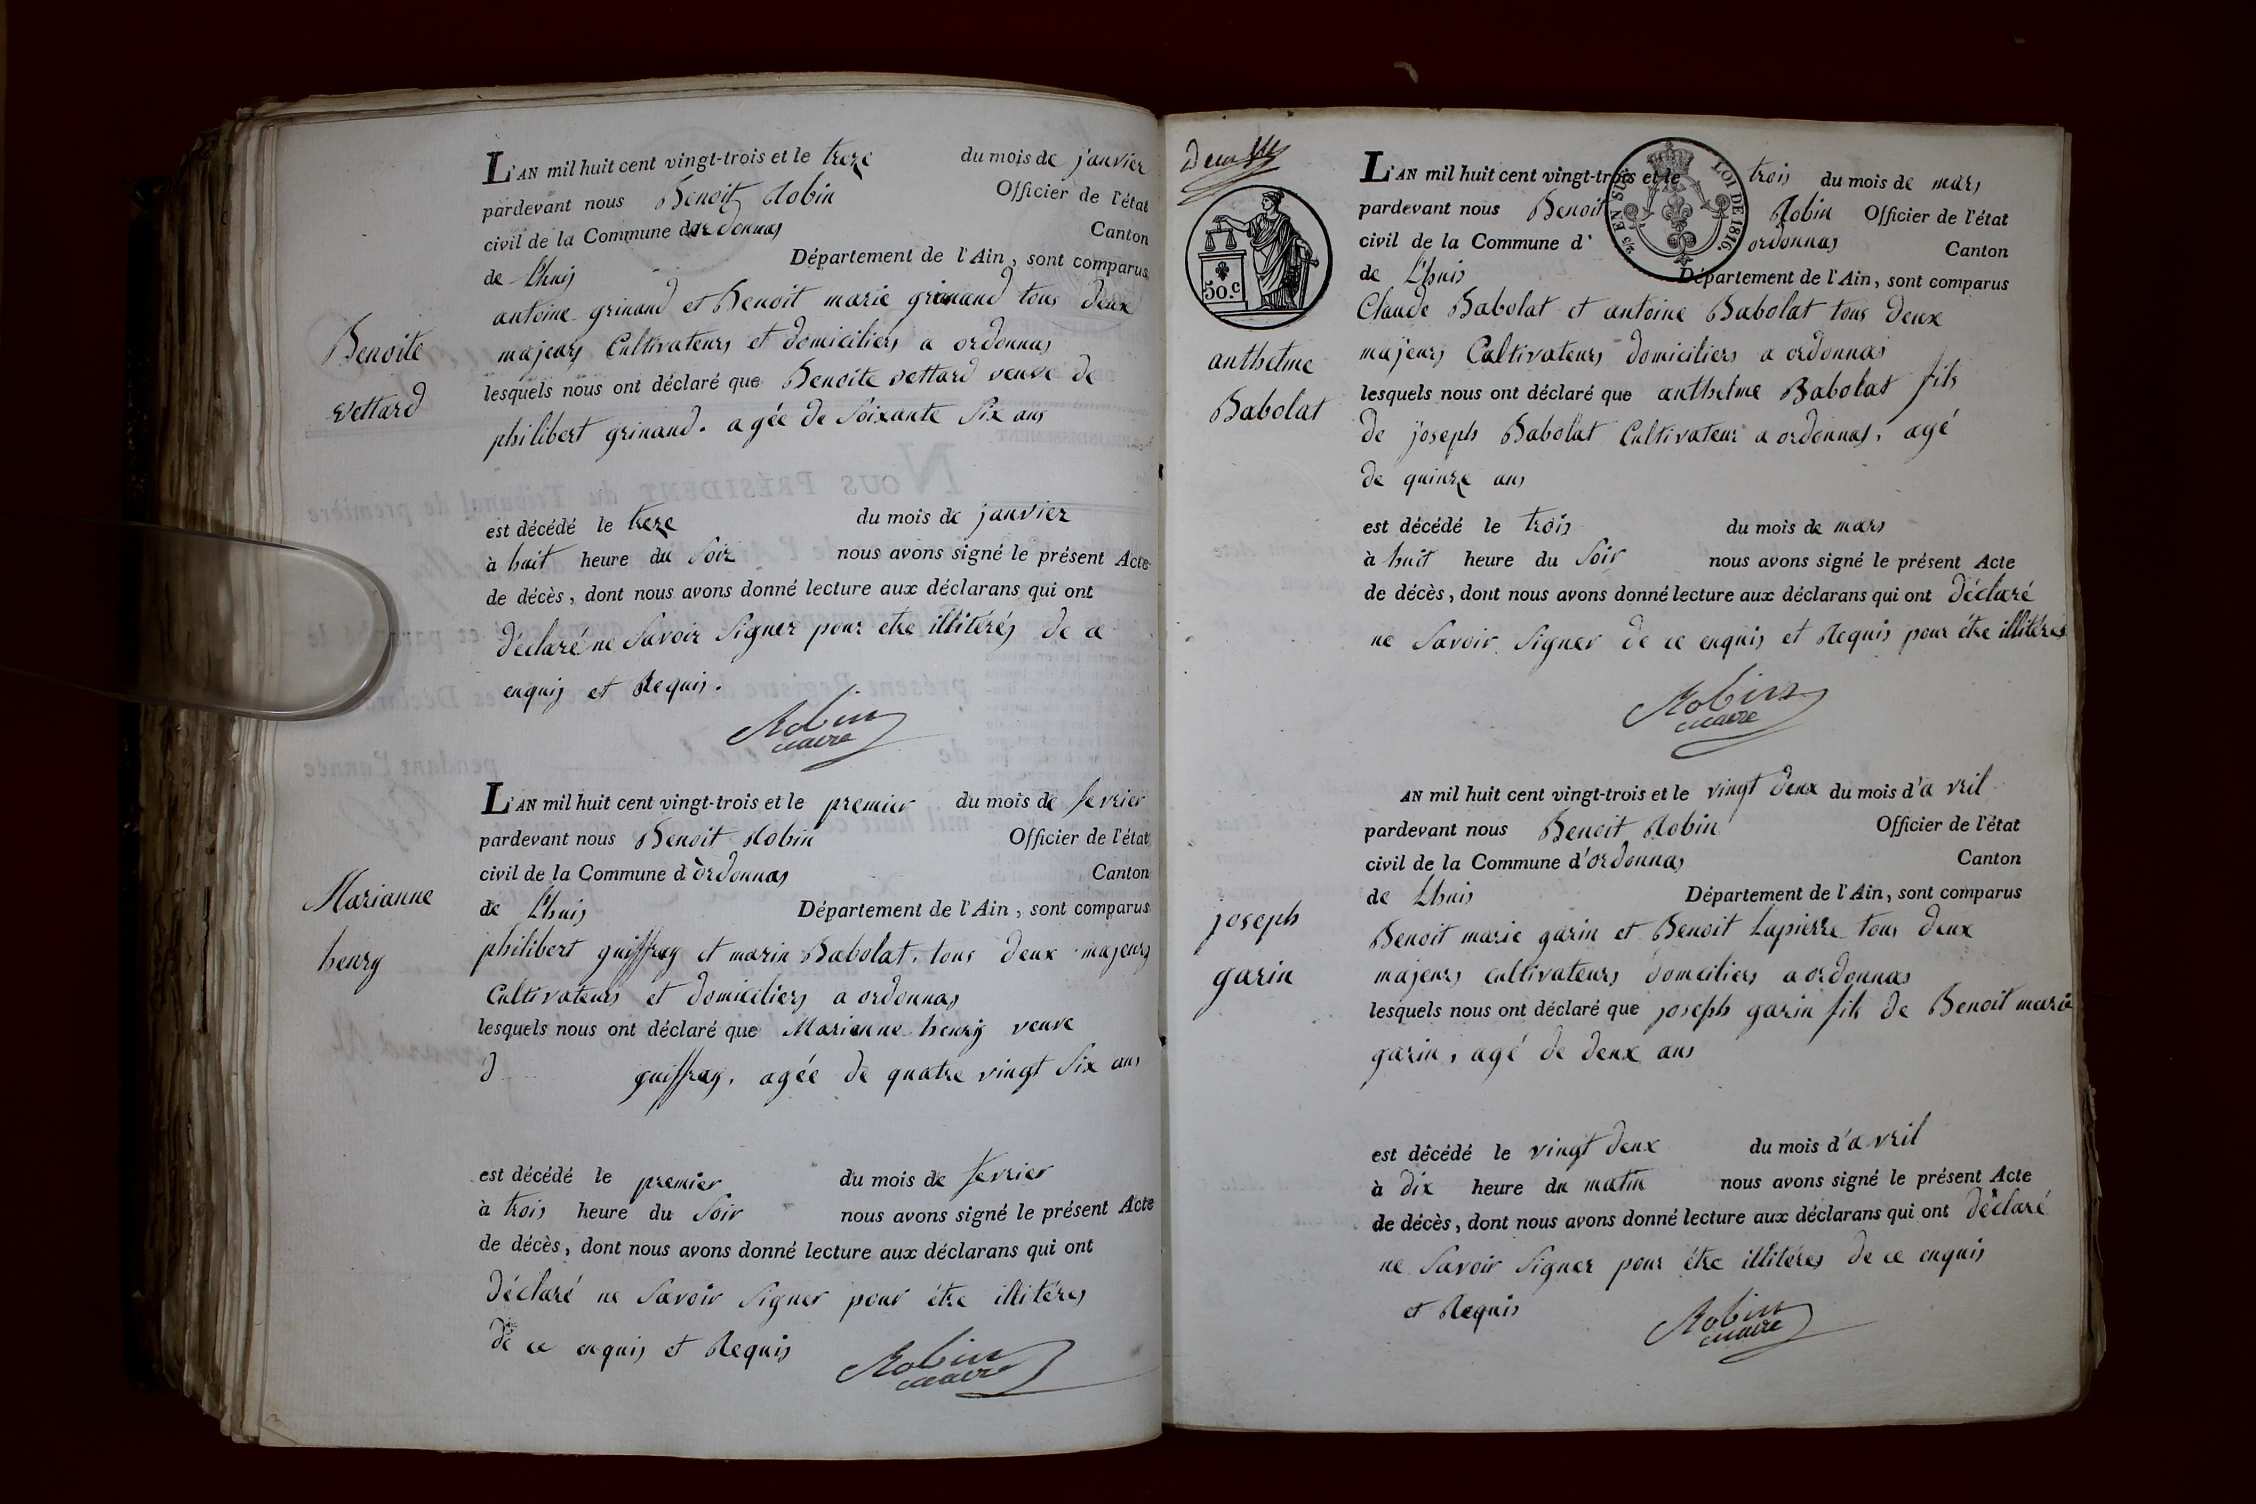 L'AN mil huit cent vingt-trois et le treze du mois de janvier
pardevant nous Benoit Robin Officier de l'état
civil de la Commune d'ordonnas Canton
de Lhuis Département de l'Ain, sont comparus
antoine grinand et Benoit marie grinand tous deux
Benoite
majeurs Cultivateurs et domiciliers a ordonnas
vettard
lesquels nous ont déclaré que Benoite vettard veuve de
philibert grinand. agée de Soixante Six ans
est décédé le treze du mois de janvier
à huit heure du Soir nous avons signé le présent Acte
de décès, dont nous avons donné lecture aux déclarans qui ont
déclaré ne Savoir Signer pour etre illitérés de ce
enquis et Requis.
Robin
maire
L'AN mil huit cent vingt-trois et le premier du mois de fevrier
pardevant nous Benoit Robin Officier de l'état
civil de la Commune d'ordonnas Canton
Marianne
de Lhuis Département de l'Ain, sont comparus
henry
philibert guiffray et marin Babolat, tous deux majeurs
Cultivateurs et domiciliers a ordonnas
lesquels nous ont déclaré que Marianne henry veuve
d guiffray, agée de quatre vingt Six ans
est décédé le premier du mois de fevrier
à trois heure du Soir nous avons signé le présent Acte
de décès, dont nous avons donné lecture aux déclarans qui ont
déclaré ne Savoir Signer pour étre illitéres
de ce enquis et Requis
Robin
maire
LOI DE 1816.
50.c
L'AN mil huit cent vingt-trois et le trois du mois de mars
pardevant nous Benoit Robin Officier de l'état
civil de la Commune d'ordonnas Canton
de Lhuis Département de l'Ain, sont comparus
Claude Babolat et antoine Babolat tous deux
anthelme
majeurs Cultivateurs domiciliers a ordonnas
Babolat
lesquels nous ont déclaré que anthelme Babolat fils
de joseph Babolat Cultivateur a ordonnas, agé
de quinze ans
est décédé le trois du mois de mars
à huit heure du Soir nous avons signé le présent Acte
de décès, dont nous avons donné lecture aux déclarans qui ont déclaré
ne Savoir Signer de ce enquis et Requis pour étre illitérés
Robin
maire
AN mil huit cent vingt-trois et le vingt deux du mois d'avril
pardevant nous Benoit Robin Officier de l'état
civil de la Commune d'ordonnas Canton
de Lhuis Département de l'Ain, sont comparus
joseph
Benoit marie garin et Benoit Lapierre tous deux
garin
majeurs cultivateurs domciliers a ordonnas
lesquels nous ont déclaré que joseph garin fils de Benoit marie
garin, agé de deux ans
est décédé le vingt deux du mois d'avril
à dix heure du matin nous avons signé le présent Acte
de décès, dont nous avons donné lecture aux déclarans qui ont déclaré
ne Savoir Signer pour étre illitéres de ce enquis
et Requis
Robin
maire